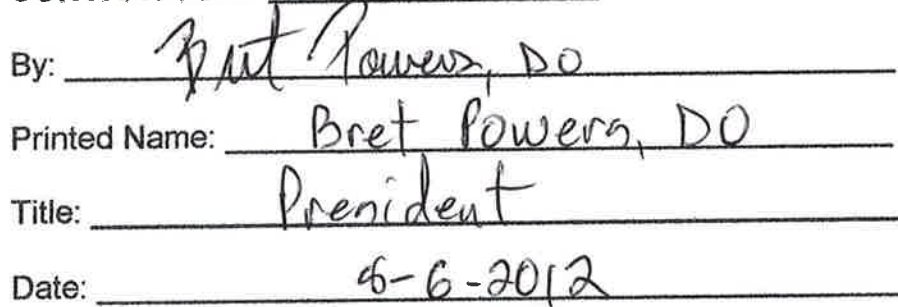 By: Bret Powers, DO
Printed Name: Bret Powers, DO
Title: President
Date: 8-6-2012